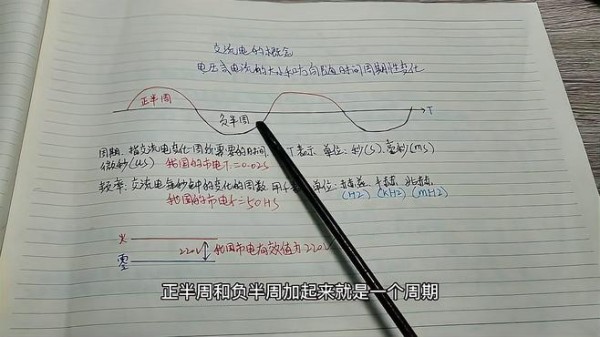 交流电的概念
电压或电流的大小和方向随时间周期性变化
正半周
负半周
T
周期：指交流电变化一周所需要的时间 T表示 单位：秒(s)、毫秒(ms)
微秒(us) 我国的市电T=0.02s
频率：交流电每秒钟中的变化的周数 用 单位 赫兹 千赫 兆赫
我国的市电f=50HS (HZ) (kHZ) (mHZ)
火
220V 我国市电有效值为220V
零
正半周和负半周加起来就是一个周期